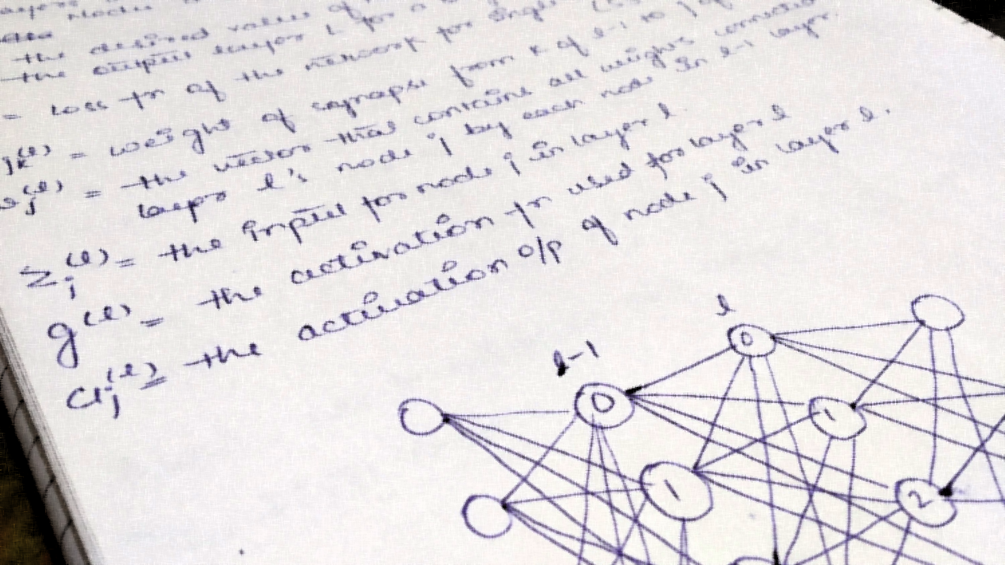 Node
the desired value of
the output layer L for a
= Loss fn of the network for single
jk(l) = weight of synapse from k of l-1 to j of
j(l) = the vector that contains all weights connected
layer l's node j by each node in l-1 layer.
Zj(l) = the input for node j in layer l
g(l) = the activation fn used for layer l
aj(l) = the activation o/p of node j in layer l.
l-1
l
0
0
1
1
2